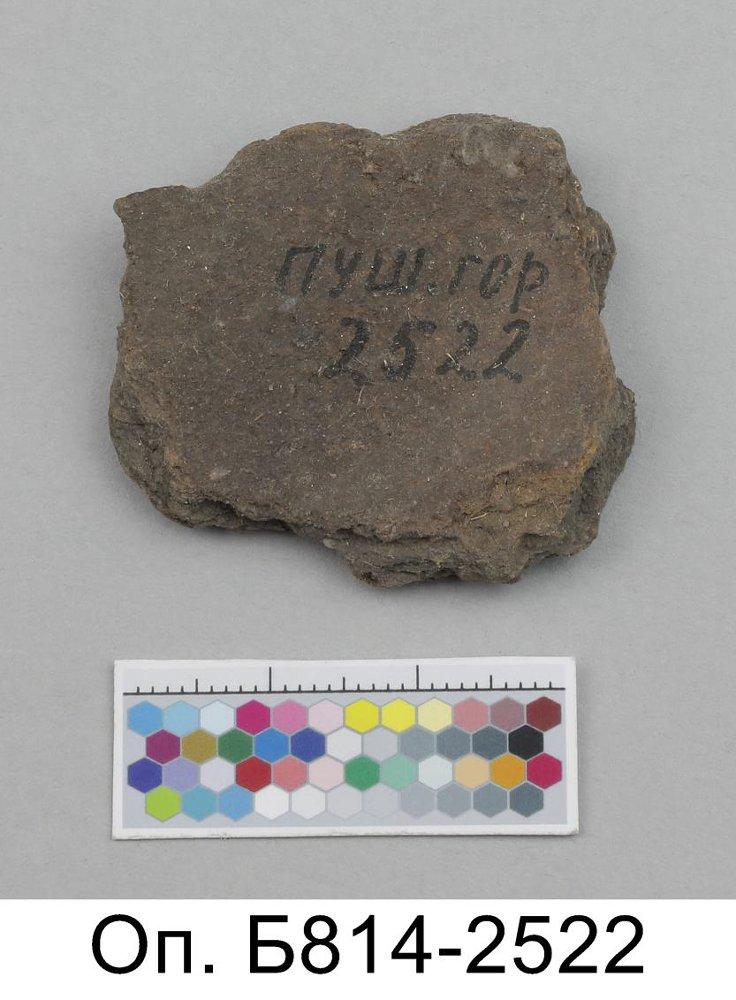 ПУШ.гор
2522
Оп. Б814-2522